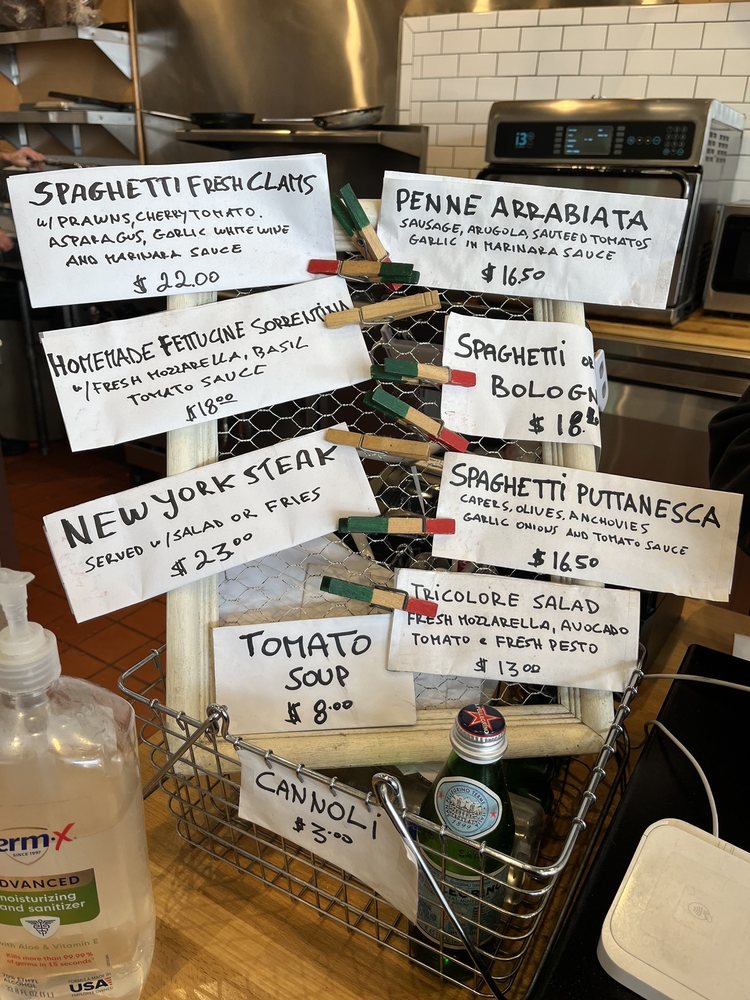 SPAGHETTI FRESH CLAMS
W/PRAWNS, CHERRYTOMATO.
ASPARAGUS, GARLIC WHITE WINE
AND MARINARA SAUCE
$ 22.00
PENNE ARRABIATA
SAUSAGE, ARUGOLA, SAUTEED TOMATOS
GARLIC IN MARINARA SAUCE
$ 16.50
HOMEMADE FETTUCINE SORRENTINA
W/FRESH MOZZARELLA, BASIL
TOMATO SAUCE
$18.00
SPAGHETTI
BOLOGN
$ 18.
NEW YORK STEAK
SERVED W/SALAD OR FRIES
$ 23.00
SPAGHETTI PUTTANESCA
CAPERS, OLIVES, ANCHOVIES
GARLIC ONIONS AND TOMATO SAUCE
$ 16.50
TRICOLORE SALAD
FRESH MOZZARELLA, AVOCADO
TOMATO e FRESH PESTO
$ 13.00
TOMATO
SOUP
$ 8.00
CANNOLI
$ 3.00
erm-x
SINCE 1997
ADVANCED
moisturizing
and sanitizer
with Aloe & Vitamin E
Kills more than 99.99%
of germs in 15 seconds*
70% ETHYL
FORMULA MADE IN
USA